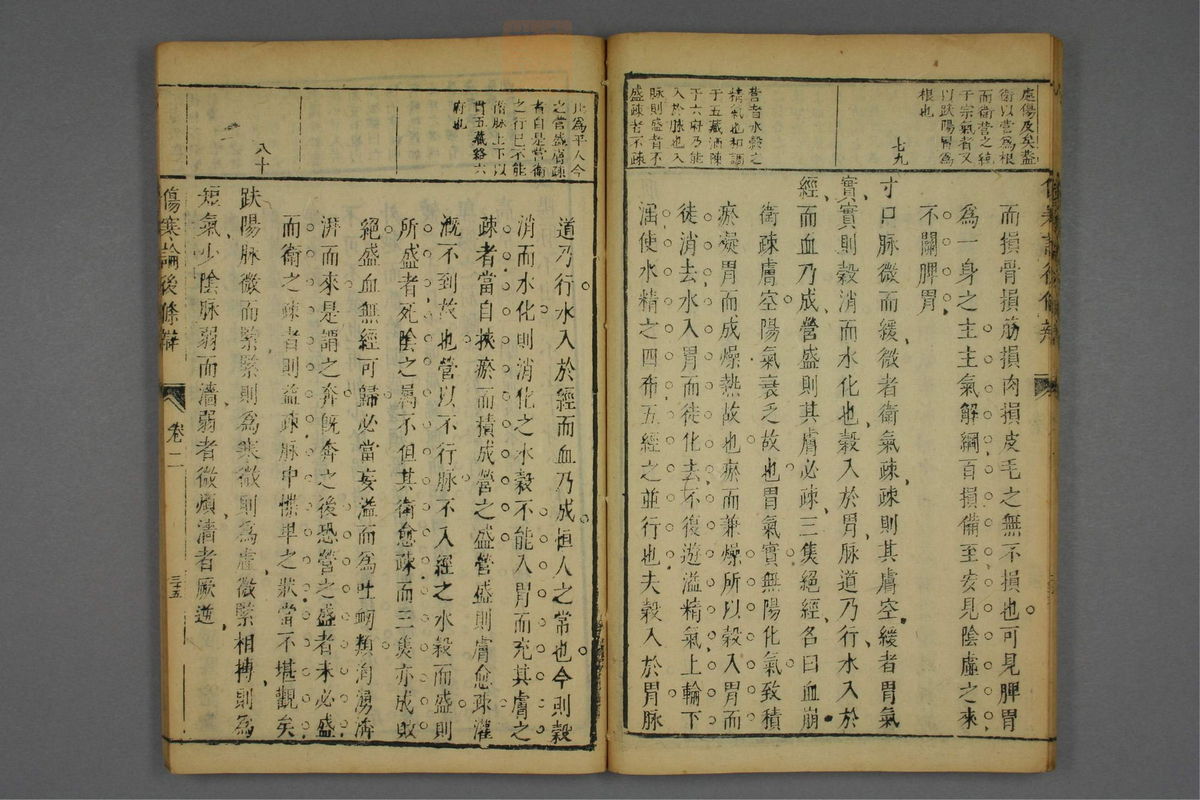 虛傷及矣蓋
衛以營爲根
而衛營之統
于宗氣者又
以趺陽胃爲
根也
七九
營者水穀之
精氣也和調
于五藏洒陳
于六府乃能
入於脉也入
脉則盛者不
盛疎者不疎
而損骨損筋損肉損皮毛之無不損也可見脾胃
爲一身之主主氣解綱百損備至安見陰虛之來
不關脾胃
寸口脉微而緩微者衛氣疎疎則其膚空緩者胃氣
實實則穀消而水化也穀入於胃脉道乃行水入於
經而血乃成營盛則其膚必疎三焦絕經名曰血崩
衛疎膚空陽氣衰乏故也胃氣實無陽化氣致積
瘀凝胃而成燥熱故也瘀而兼燥所以穀入胃而
徒消去水入胃而徒化去不復遊溢精氣上輸下
濡使水精之四布五經之並行也夫穀入於胃脉
此爲平人今
之營盛膚疎
者自是營衛
之行已不能
循脉上下以
貫五藏絡六
府也
八十
道乃行水入於經而血乃成恒人之常也今則穀
消而水化則消化之水穀不能入胃而充其膚之
疎者當自挾瘀而積成營之盛營盛則膚愈疎灌
溉不到故也營以不行脉不入經之水穀而盛則
所盛者死陰之屬不但其衛愈疎而三焦亦成敗
絕盛血無經可歸必當妄溢而爲吐衂類洶湧濟
湃而來是謂之奔旣奔之後恐營之盛者未必盛
而衛之疎者則益疎脉中慄卑之狀當不堪觀矣
趺陽脉微而緊緊則爲寒微則爲虛微緊相搏則爲
短氣少陰脉弱而濇弱者微煩濇者厥逆
傷寒論後條辯
卷二
三十五